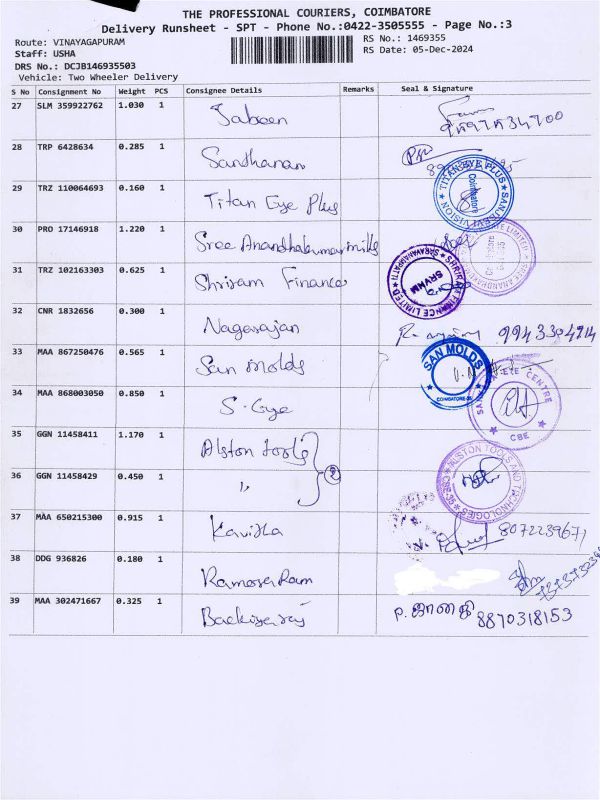 THE PROFESSIONAL COURIERS, COIMBATORE
Delivery Runsheet - SPT - Phone No.:0422-3505555 - Page No.:3
Route: VINAYAGAPURAM
RS No.: 1469355
Staff: USHA
RS Date: 05-Dec-2024
DRS No.: DCJB146935503
Vehicle: Two Wheeler Delivery
S No Consignment No Weight PCS Consignee Details Remarks Seal & Signature
27 SLM 359922762 1.030 1 Jabeen
28 TRP 6428634 0.285 1 Santhanan
29 TRZ 110064693 0.160 1 Titan Eye Plus
TITAN EYE PLUS SANJEEVI VISION Coimbatore
30 PRO 17146918 1.220 1 Sree Anandhakumar mills
31 TRZ 102163303 0.625 1 Shriram Finance
SHRIRAM FINANCE LIMITED SARAVANAMPATTI SRVHM
32 CNR 1832656 0.300 1 Nagarajan 9943304214
33 MAA 867250476 0.565 1 San Molds
SAN MOLDS COIMBATORE-35
34 MAA 868003050 0.850 1 S. Eye
EYE CENTRE CBE
35 GGN 11458411 1.170 1 Alston tools
36 GGN 11458429 0.450 1 " 2
ALSTON TOOLS AND TECHNOLOGIES
37 MAA 650215300 0.915 1 Kavitha 8072239671
38 DDG 936826 0.180 1 Rameswaram
39 MAA 302471667 0.325 1 Backiyaraj P. ஜானகி 8870318153